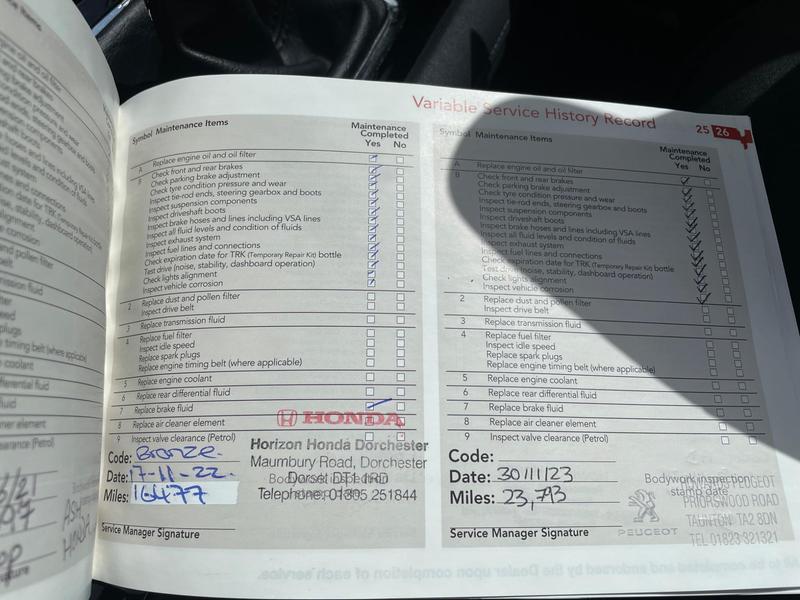 Variable Service History Record
25 26
Symbol Maintenance Items
Maintenance
Completed
Yes No
A Replace engine oil and oil filter
B Check front and rear brakes
Check parking brake adjustment
Check tyre condition pressure and wear
Inspect tie-rod ends, steering gearbox and boots
Inspect suspension components
Inspect driveshaft boots
Inspect brake hoses and lines including VSA lines
Inspect all fluid levels and condition of fluids
Inspect exhaust system
Inspect fuel lines and connections
Check expiration date for TRK (Temporary Repair Kit) bottle
Test drive (noise, stability, dashboard operation)
Check lights alignment
Inspect vehicle corrosion
2 Replace dust and pollen filter
Inspect drive belt
3 Replace transmission fluid
4 Replace fuel filter
Inspect idle speed
Replace spark plugs
Replace engine timing belt (where applicable)
5 Replace engine coolant
6 Replace rear differential fluid
7 Replace brake fluid
8 Replace air cleaner element
9 Inspect valve clearance (Petrol)
HONDA
Horizon Honda Dorchester
Maumbury Road, Dorchester
Dorset DT1 1RD
Telephone: 01305 251844
Code: Bronze.
Date: 17-11-22.
Miles: 16477
Service Manager Signature
Symbol Maintenance Items
Maintenance
Completed
Yes No
A Replace engine oil and oil filter
B Check front and rear brakes
Check parking brake adjustment
Check tyre condition pressure and wear
Inspect tie-rod ends, steering gearbox and boots
Inspect suspension components
Inspect driveshaft boots
Inspect brake hoses and lines including VSA lines
Inspect all fluid levels and condition of fluids
Inspect exhaust system
Inspect fuel lines and connections
Check expiration date for TRK (Temporary Repair Kit) bottle
Test drive (noise, stability, dashboard operation)
Check lights alignment
Inspect vehicle corrosion
2 Replace dust and pollen filter
Inspect drive belt
3 Replace transmission fluid
4 Replace fuel filter
Inspect idle speed
Replace spark plugs
Replace engine timing belt (where applicable)
5 Replace engine coolant
6 Replace rear differential fluid
7 Replace brake fluid
8 Replace air cleaner element
9 Inspect valve clearance (Petrol)
Code:
Date: 30/11/23
Miles: 23,793
Bodywork inspection
stamp date
PEUGEOT
PRIORSWOOD ROAD
TAUNTON TA2 8DN
TEL 01823 321321
PEUGEOT
Service Manager Signature